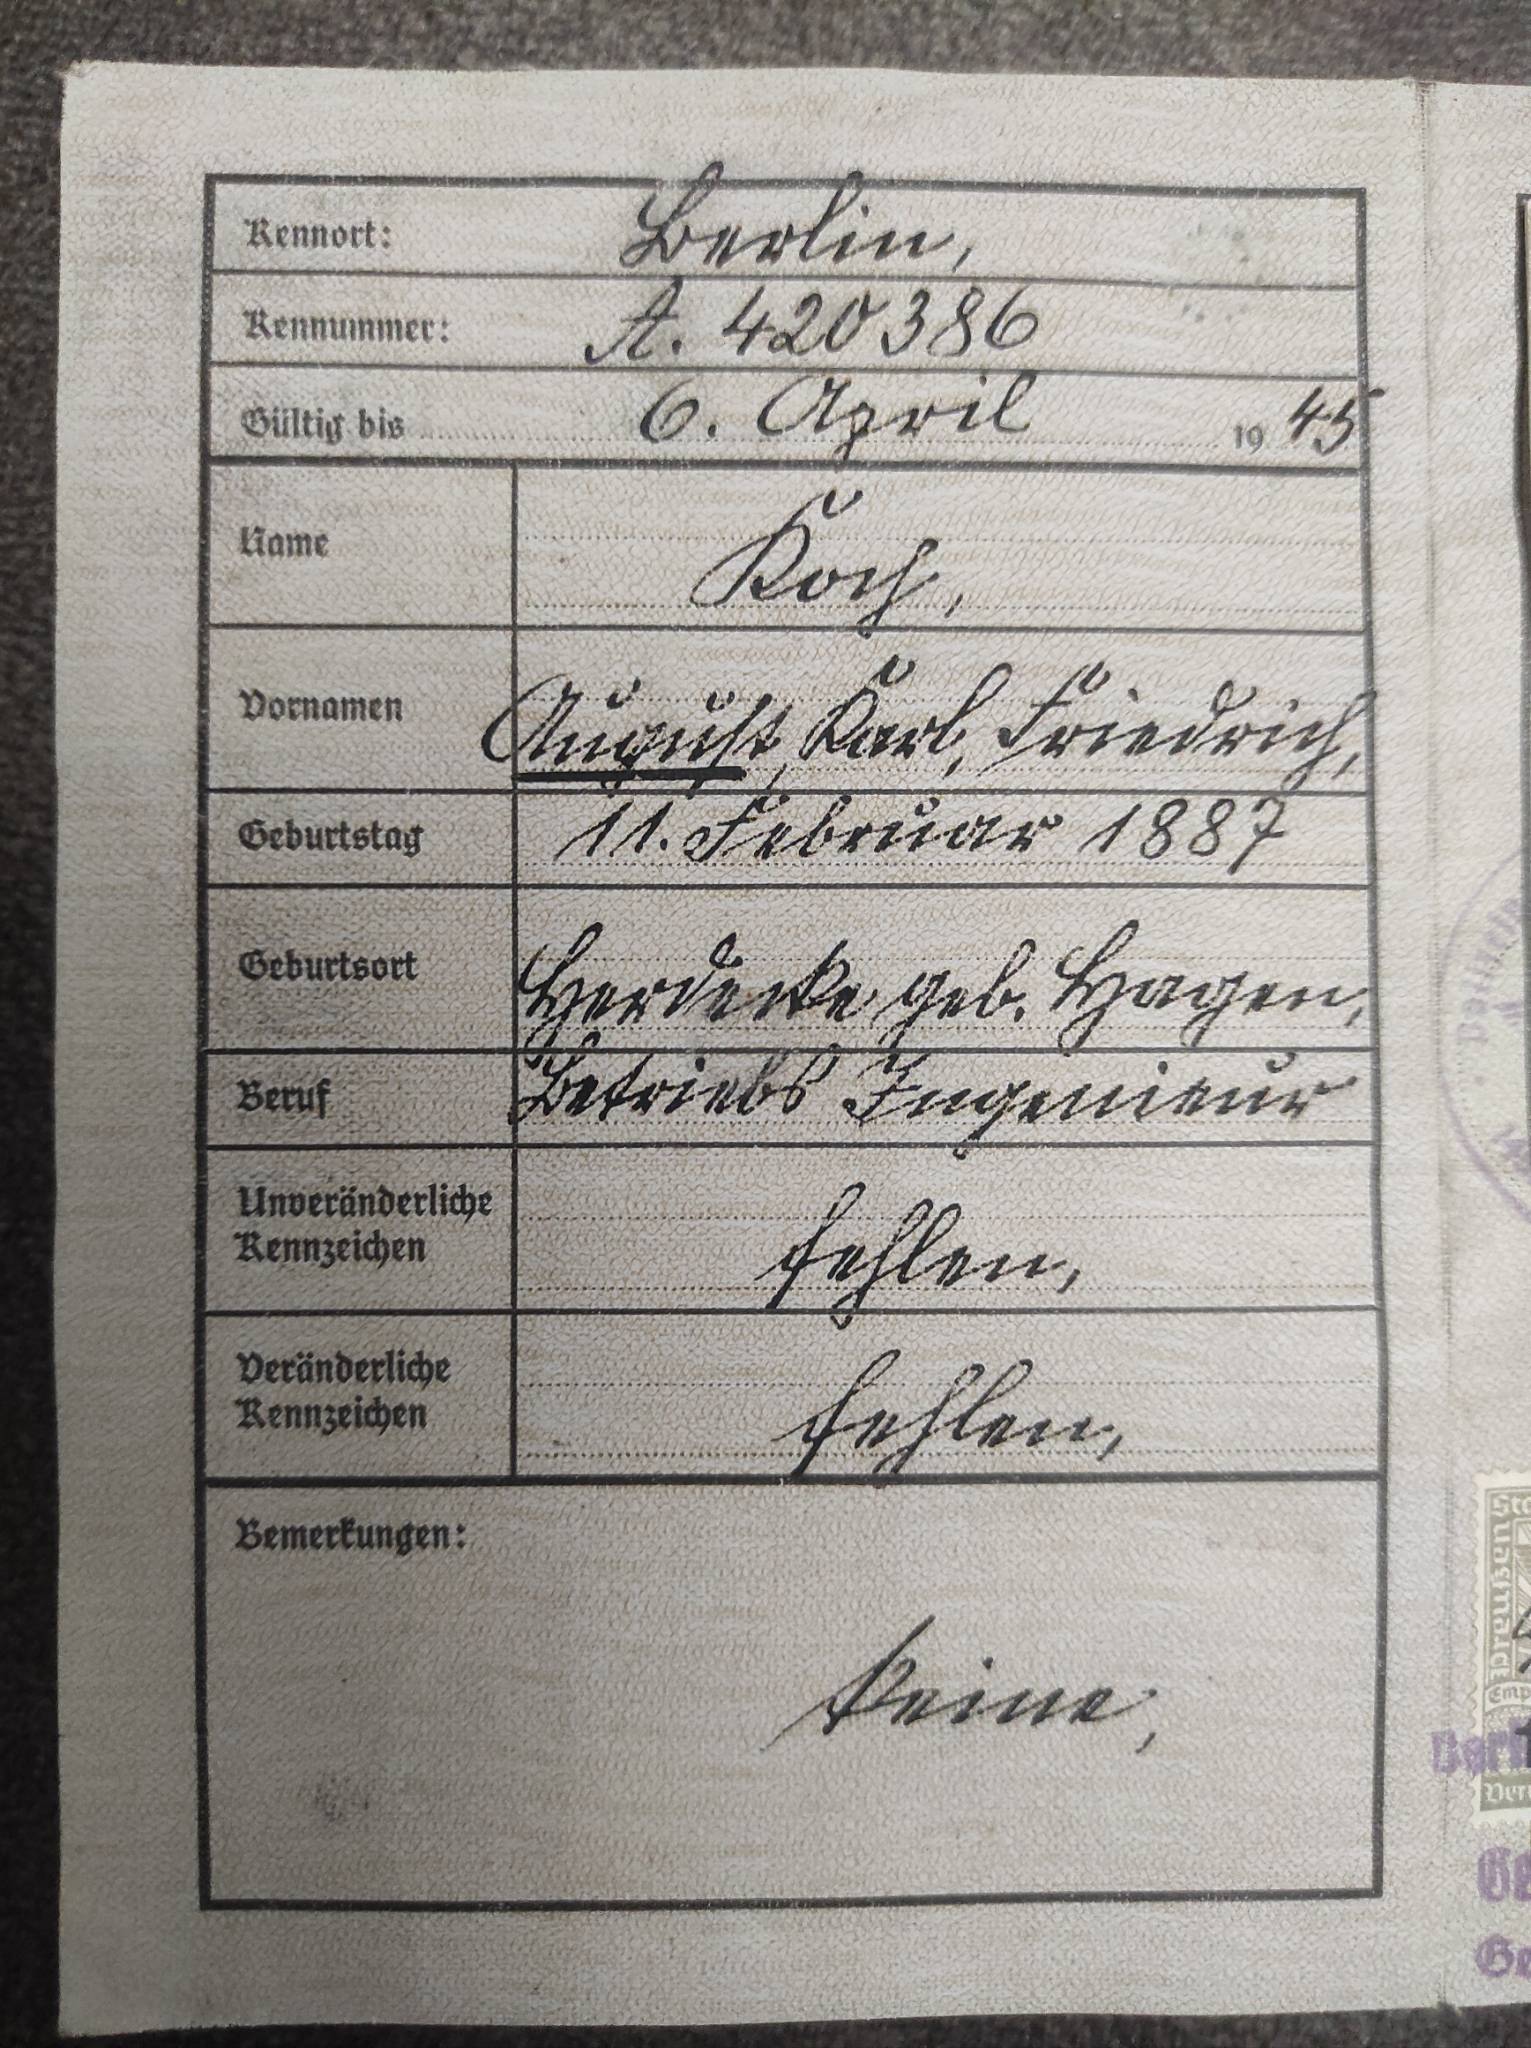 Kennort: Berlin,
Kennummer: A. 420386
Gültig bis 6. April 1945
Name Koch,
Vornamen August, Karl, Friedrich,
Geburtstag 11. Februar 1887
Geburtsort Herdecke geb. Hagen,
Beruf Betriebs Ingenieur
Unveränderliche
Kennzeichen fehlen,
Veränderliche
Kennzeichen fehlen,
Bemerkungen:
keine,
Preußen